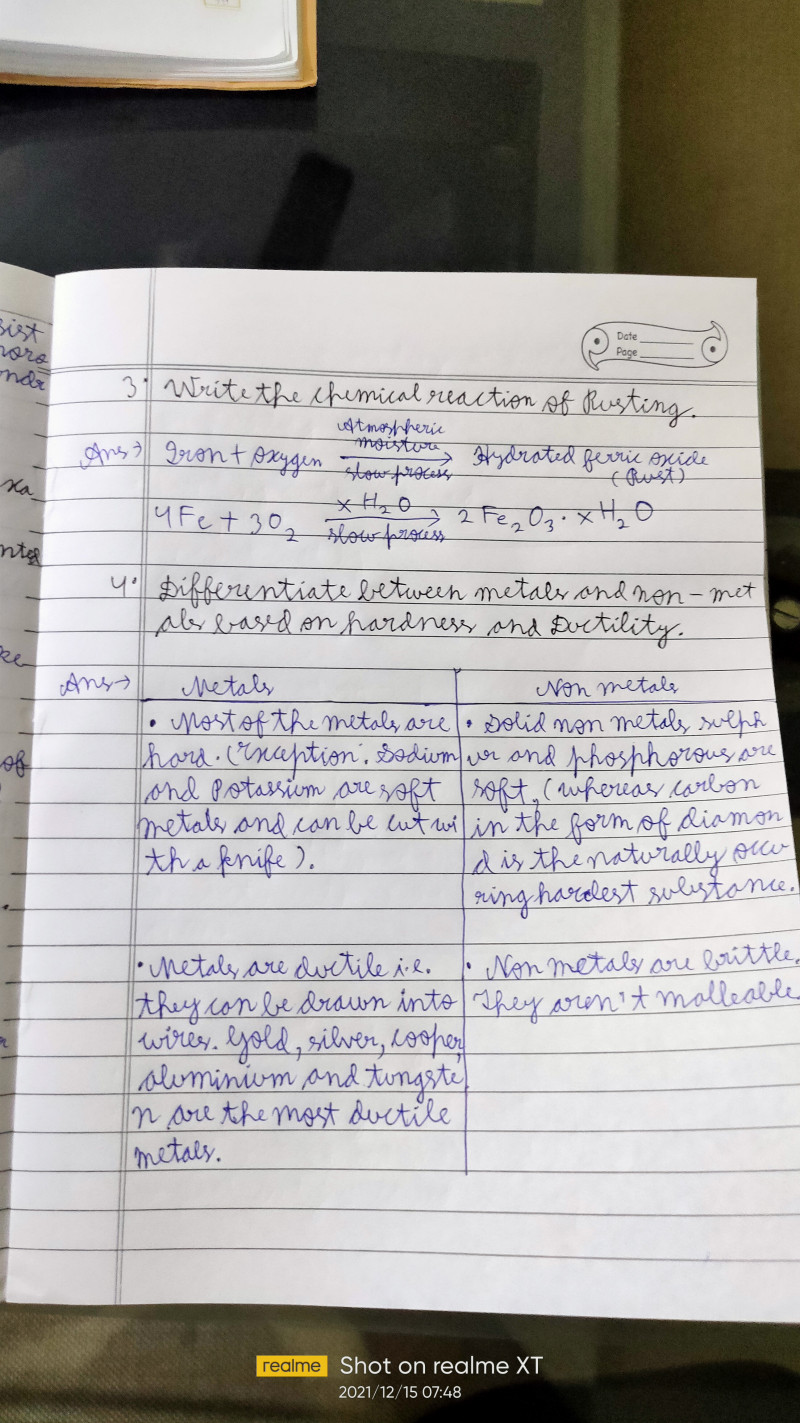 sist
ndr
Date
Page
3. Write the chemical reaction of Rusting.
Atmospheric
Ans → Iron + Oxygen moisture → Hydrated ferric oxide
slow process (Rust)
4Fe + 3O₂ xH₂O → 2Fe₂O₃·xH₂O
slow process
4. Differentiate between metals and non-met
als based on hardness and Ductility.
Ans → Metals
Non metals
• Most of the metals are
hard. (Exception: Sodium
and Potassium are soft
metals and can be cut wi
th a knife).
• Solid non metals sulph
ur and phosphorous are
soft, (whereas carbon
in the form of diamon
d is the naturally occu
ring hardest substance.
• Metals are ductile i.e.
they can be drawn into
wires. Gold, silver, cooper,
aluminium and tungste
n are the most ductile
metals.
• Non metals are brittle.
They aren't malleable
of
realme Shot on realme XT
2021/12/15 07:48